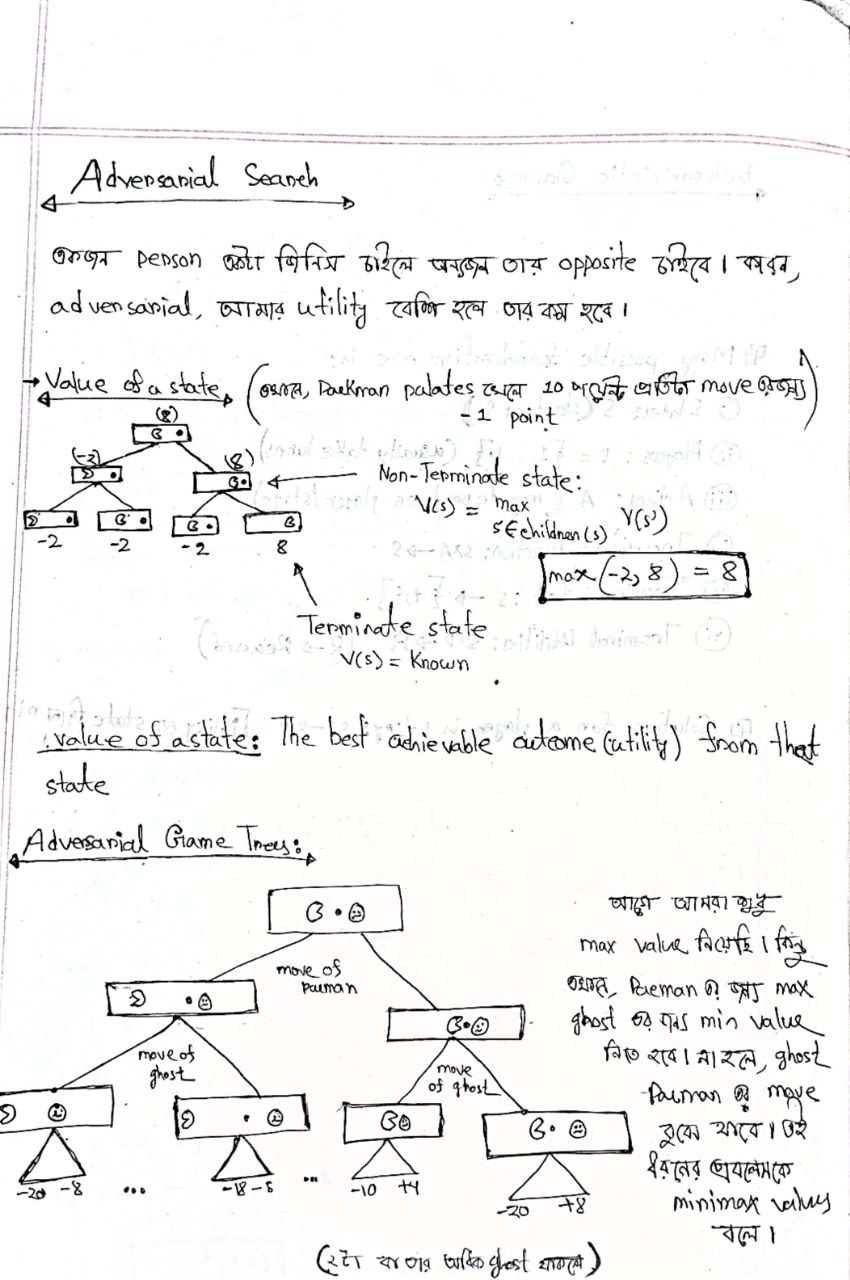 Adversarial Search
একজন person একটা জিনিস চাইলে অন্যজন তার opposite চাইবে। কারন,
adversarial, আমার utility বেশি হলে তার কম হবে।
→ Value of a state (এখানে, Packman palates খেলে 10 পয়েন্ট প্রতিটা move এর জন্য
-1 point)
(8)
(-2) (8)
Non-Terminate state:
V(s) = max V(s')
s'∈children(s)
-2 -2 -2 8
max(-2, 8) = 8
Terminate state
V(s) = Known
value of a state: The best achievable outcome (utility) from that
state
Adversarial Game Trees:
move of
pacman
move of
ghost
move
of ghost
-20 -8 ... -18 -5 ... -10 +4 -20 +8
আগে আমরা শুধু
max value নিয়েছি। কিন্তু
এখানে, Pacman এর জন্য max
ghost এর জন্য min value
নিতে হবে। না হলে, ghost
Pacman এর move
বুঝে যাবে। এই
ধরনের প্রবলেমকে
minimax values
বলে।
(২টা বা তার অধিক ghost থাকলে)